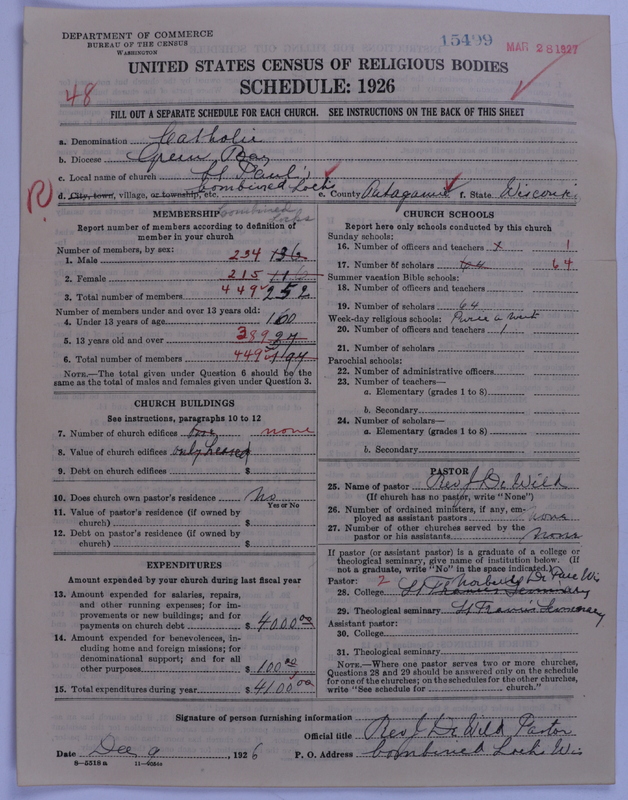 DEPARTMENT OF COMMERCE
BUREAU OF THE CENSUS
WASHINGTON
15499
MAR 28 1927
UNITED STATES CENSUS OF RELIGIOUS BODIES
SCHEDULE: 1926
48
FILL OUT A SEPARATE SCHEDULE FOR EACH CHURCH. SEE INSTRUCTIONS ON THE BACK OF THIS SHEET
a. Denomination Catholic
b. Diocese Green Bay
c. Local name of church St Paul's
R
d. City, town, village, or township, etc. Combined Locks e. County Outagamie f. State Wisconsin
MEMBERSHIP Combined Locks
Report number of members according to definition of member in your church
Number of members, by sex:
1. Male 234 136
2. Female 215 116
3. Total number of members 449 252
Number of members under and over 13 years old:
4. Under 13 years of age 160
5. 13 years old and over 289
6. Total number of members 449 194
NOTE.—The total given under Question 6 should be the same as the total of males and females given under Question 3.
CHURCH BUILDINGS
See instructions, paragraphs 10 to 12
7. Number of church edifices none
8. Value of church edifices only leased
9. Debt on church edifices $
10. Does church own pastor's residence No
Yes or No
11. Value of pastor's residence (if owned by church) $
12. Debt on pastor's residence (if owned by church) $
EXPENDITURES
Amount expended by your church during last fiscal year
13. Amount expended for salaries, repairs, and other running expenses; for improvements or new buildings; and for payments on church debt $ 4000.00
14. Amount expended for benevolences, including home and foreign missions; for denominational support; and for all other purposes $ 100.00
15. Total expenditures during year $ 4100.00
CHURCH SCHOOLS
Report here only schools conducted by this church
Sunday schools:
16. Number of officers and teachers x 1
17. Number of scholars 64 64
Summer vacation Bible schools:
18. Number of officers and teachers
19. Number of scholars 64
Week-day religious schools: Twice a week
20. Number of officers and teachers 1
21. Number of scholars
Parochial schools:
22. Number of administrative officers
23. Number of teachers—
a. Elementary (grades 1 to 8)
b. Secondary
24. Number of scholars—
a. Elementary (grades 1 to 8)
b. Secondary
PASTOR
25. Name of pastor Rev J De Wild
(If church has no pastor, write "None")
26. Number of ordained ministers, if any, employed as assistant pastors none
27. Number of other churches served by the pastor or his assistants none
If pastor (or assistant pastor) is a graduate of a college or theological seminary, give name of institution below. (If not a graduate, write "No" in the space indicated.)
Pastor: 2 St Norbert De Pere Wis
28. College St Francis Seminary
29. Theological seminary St Francis Seminary
Assistant pastor:
30. College
31. Theological seminary
NOTE.—Where one pastor serves two or more churches, Questions 28 and 29 should be answered only on the schedule for one of the churches; on the schedules for the other churches, write "See schedule for church."
Signature of person furnishing information
Official title Rev J De Wild Pastor
Date Dec 9, 1926 P. O. Address Combined Locks Wis
8-5518 a